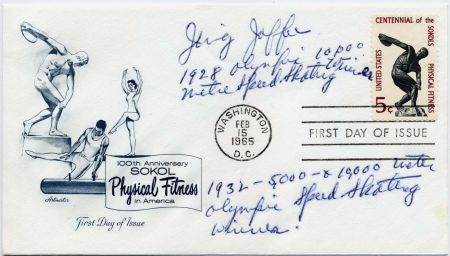 Irving Jaffee
1928 Olympic 10,000
Metre Speed Skating Winner
CENTENNIAL of the SOKOLS
UNITED STATES
PHYSICAL FITNESS
5c
WASHINGTON
FEB
15
1965
D.C.
FIRST DAY OF ISSUE
100th Anniversary
SOKOL
Physical Fitness
in America
Artmaster
First Day of Issue
1932 - 5000 - & 10,000 meter
Olympic Speed Skating
Winner.